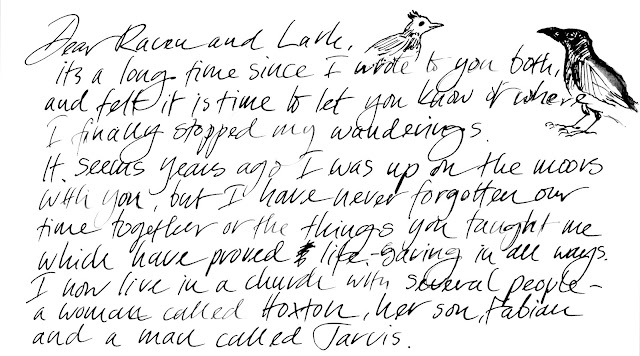 Dear Raven and Lark,
its a long time since I wrote to you both,
and felt it is time to let you know of where
I finally stopped my wanderings.
It seems years ago I was up on the moors
with you, but I have never forgotten our
time together or the things you taught me
which have proved life-saving in all ways.
I now live in a church with several people -
a woman called Hoxton, her son, Fabian
and a man called Jarvis.